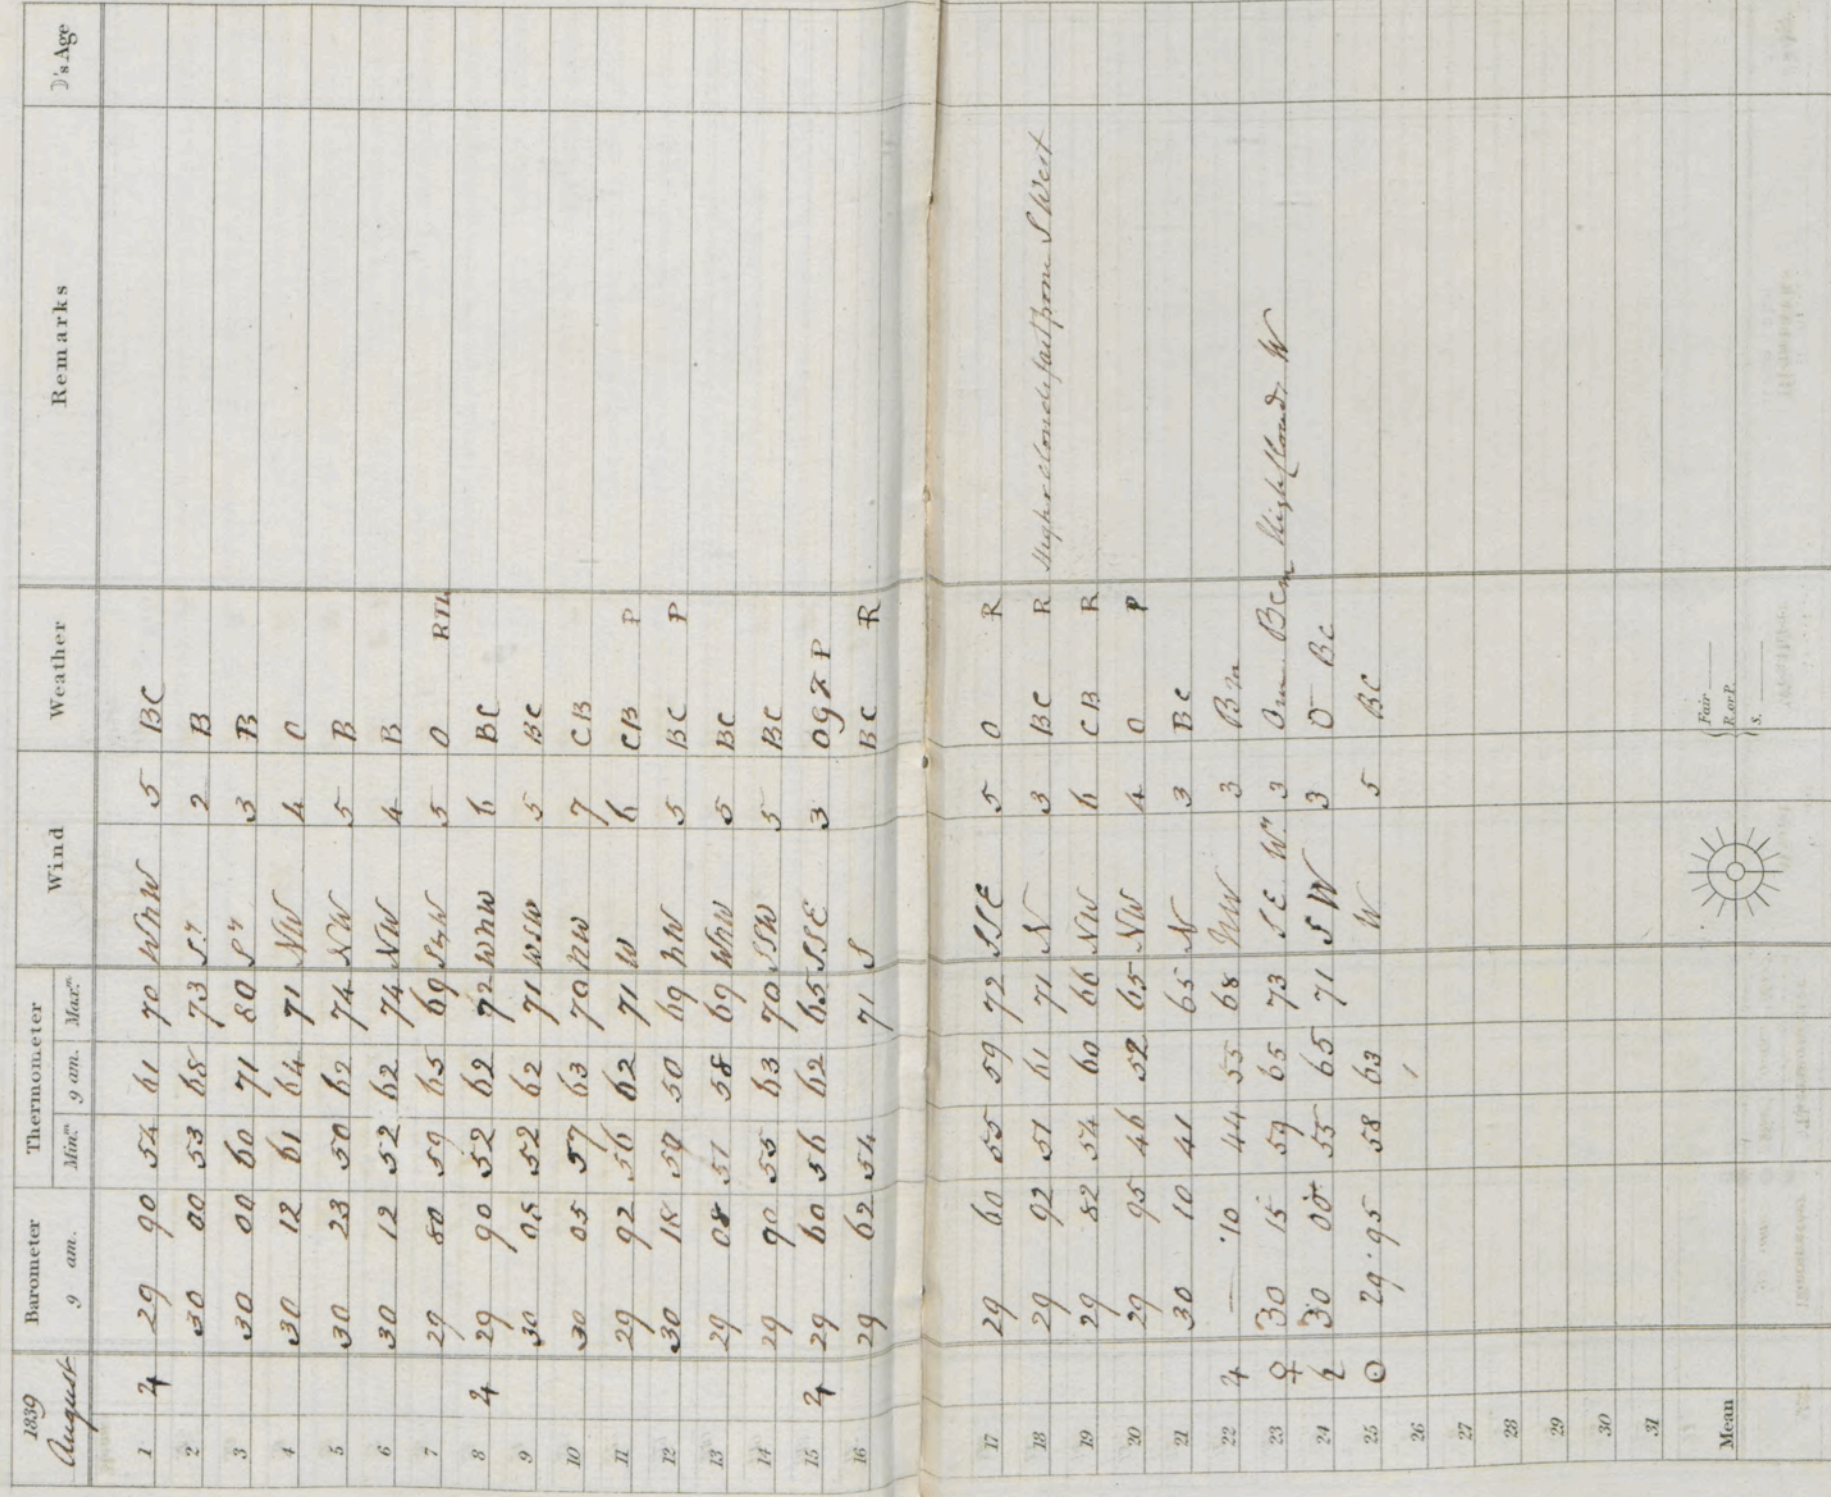 1839 August | Barometer 9 am. | Thermometer Min.m 9 am. Max.m | Wind | Weather | Remarks | ☽'s Age
1 ♃ 29 90 54 61 70 WNW 5 BC
2 30 00 53 68 73 Sy 2 B
3 30 00 60 71 80 Sy 3 B
4 30 12 61 64 71 NW 4 C
5 30 23 50 62 74 NW 5 B
6 30 12 52 62 74 NW 4 B
7 29 80 59 65 69 5 O
8 ♃ 29 90 52 62 72 WNW 6 BC
9 30 05 52 62 71 WSW 5 BC
10 30 05 57 63 70 NW 7 CB
11 29 92 56 62 71 W 6 CB P
12 30 18 50 69 NW 5 BC P
13 29 08 51 58 69 WNW 5 BC
14 29 90 55 63 70 SSW 5 BC
15 ♃ 29 60 56 62 65 SSE 3 OG P
16 29 62 54 71 S BC R
17 29 60 55 59 72 SSE 5 O R
18 29 92 51 61 71 N 3 BC R Higher clouds fast from S West
19 29 82 54 60 66 NW 6 CB R
20 29 95 46 52 65 NW 4 O P
21 30 10 41 65 N 3 BC
22 ♃ — .10 44 55 68 NW 3 Bm
23 ♀ 30 15 59 65 73 SE W 3 Om Bcm High Clouds W
24 ♄ 30 00 55 65 71 SW 3 O BC
25 ☉ 29.95 58 63 W 5 BC
26
27
28
29
30
31
Mean { Fair
R. or P.
S.